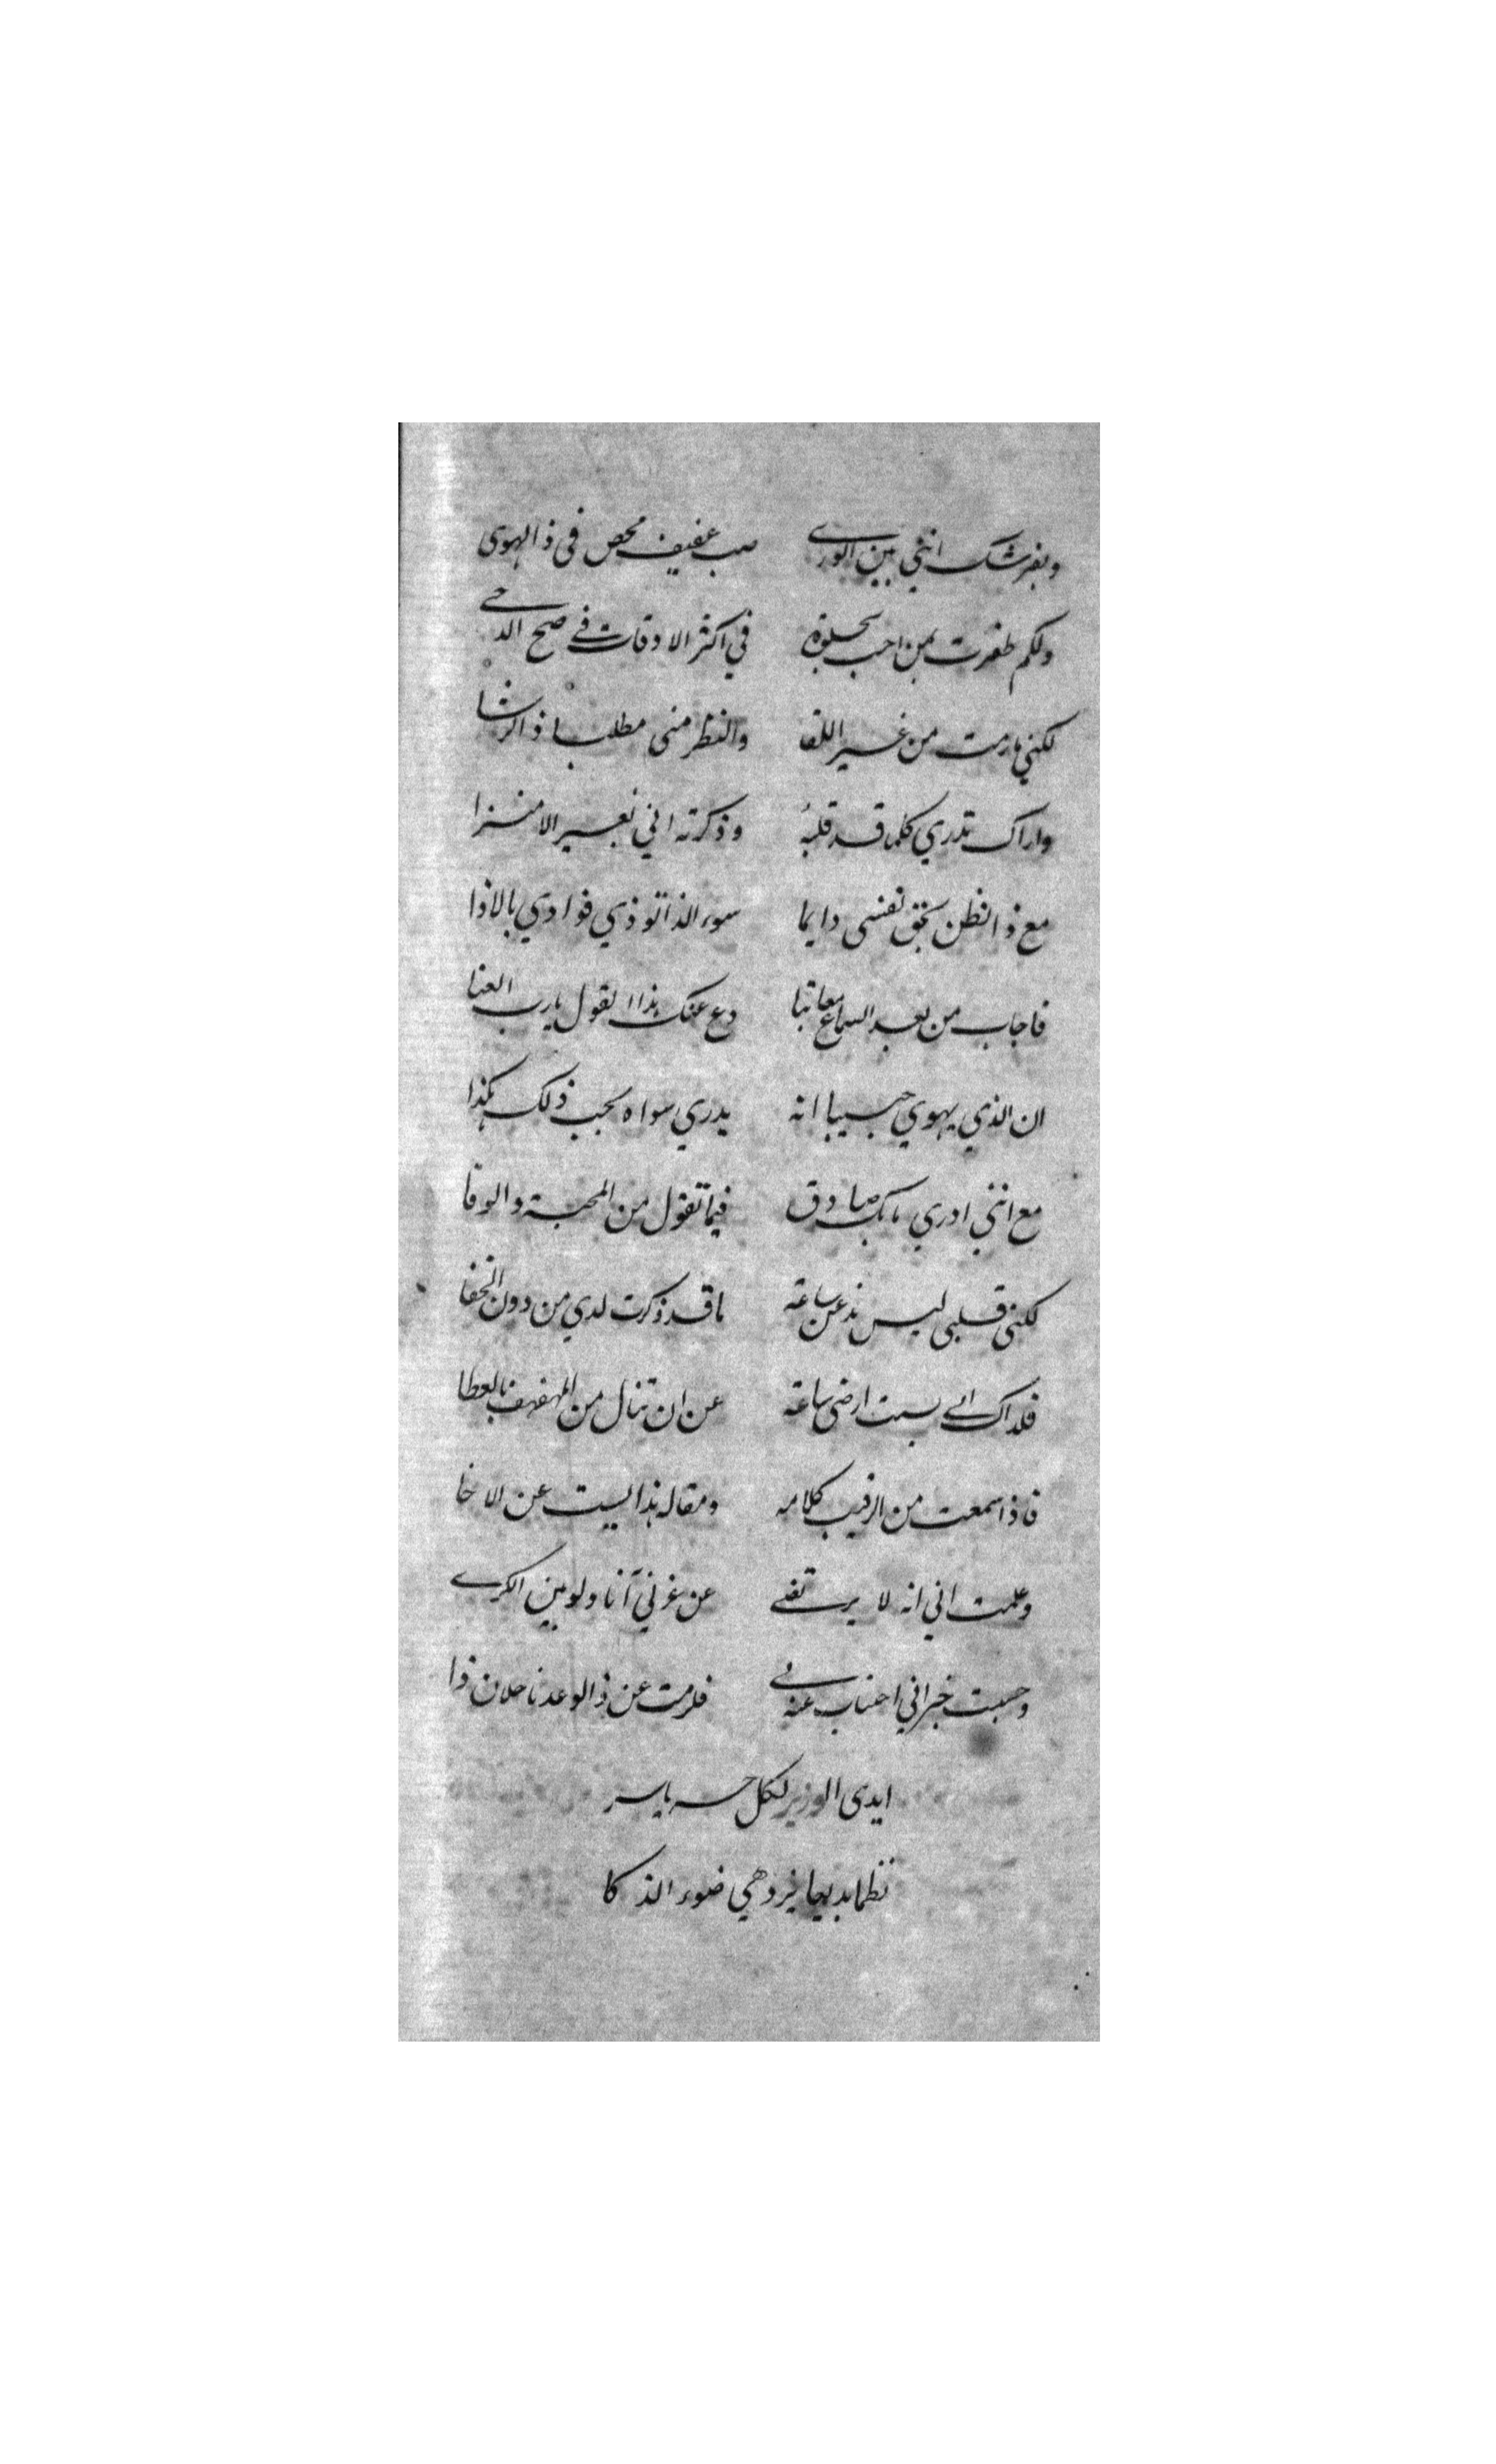 وبغير شك انني بين الورى صب عفيف محص في ذا الهوى
ولكم ظفرت بمن احب بخلوة في اكثر الاوقات في صح الدجى
لكنني ما رمت من غير اللقا والنظر مني مطلبا ذا الرشا
واراك تدري كلما قد قلبه وذكرته اني بغير الامترا
مع ذا تظن بحق نفسي دايما سوء الذا توذي فوادي بالاذا
فاجاب من بعد السماع معاتبا دع عنك هذا القول يارب العنا
ان الذي يهوي حبيبا انه يدري سواه بحب ذلك هكذا
مع انني ادري بانك صادق فيما تقول من المحبة والوفا
لكنني قلبي ليس يذعن ساعة ما قد ذكرت لدي من دون الخفا
فلذاك اني لست ارضى ساعة عن ان تنال من المهفهف بالعطا
فاذا سمعت من الرقيب كلامه ومقاله هذا ليست عن الاخا
وعلمت اني انه لا يرتضي عن غرني آنا ولو بين الكرى
وحسبت خيراني اجتناب عنه فلرمت عن ذا الوعد ناحلان ذا
ابدى الوزير لكل حر ياسر
نظما بديعا يزدهي ضوء الذكا